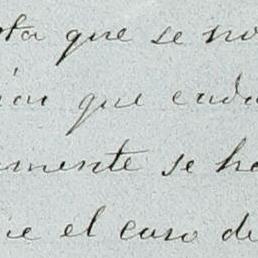 sta que se no
ion que cada
emente se ha
ue el caso de